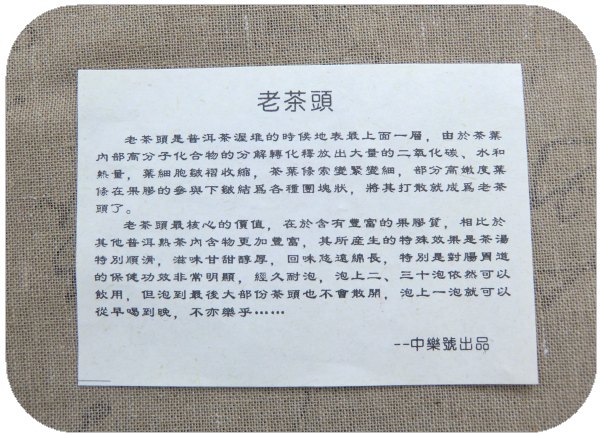 老茶頭
老茶頭是普洱茶渥堆的時侯地表最上面一層，由於茶葉
內部高分子化合物的分解轉化釋放出大量的二氧化碳、水和
熱量，葉細胞皺褶收縮，茶葉條索變緊變細，部分高嫩度葉
條在果膠的參與下皺結爲各種團塊狀，將其打散就成爲老茶
頭了。
老茶頭最核心的價值，在於含有豐富的果膠質，相比於
其他普洱熟茶內含物更加豐富，其所産生的特殊效果是茶湯
特別順滿，滋味甘甜醇厚，回味悠遠綿長，特別是對腸胃道
的保健功效非常明顯，經久耐泡，泡上二、三十泡依然可以
飲用，但泡到最後大部份茶頭也不會散開，泡上一泡就可以
從早喝到晚，不亦樂乎……
--中樂號出品